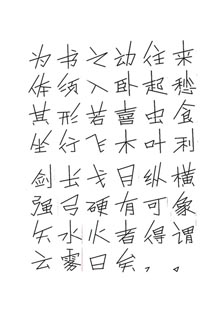 为书之动往来
体须入卧起愁
其形若喜虫食
坐行飞木叶利
剑长戈日纵横
强弓硬有可象
矢水火者得谓
云雾曰矣，。